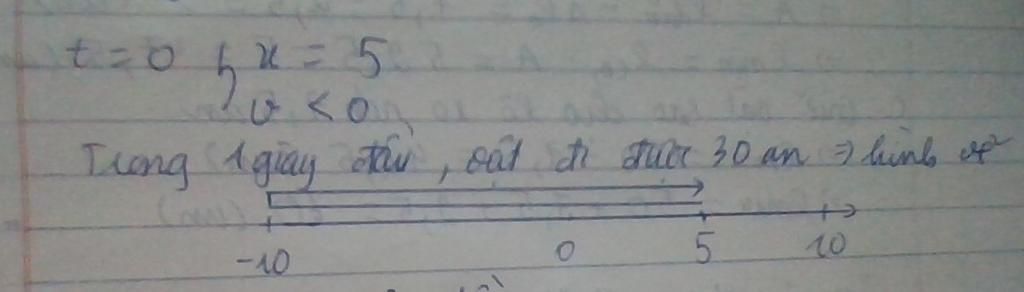 t = 0 { x = 5
v < 0
Trong 1 giây đầu, vật đi được 30 cm ⇒ hình vẽ
-10 0 5 10